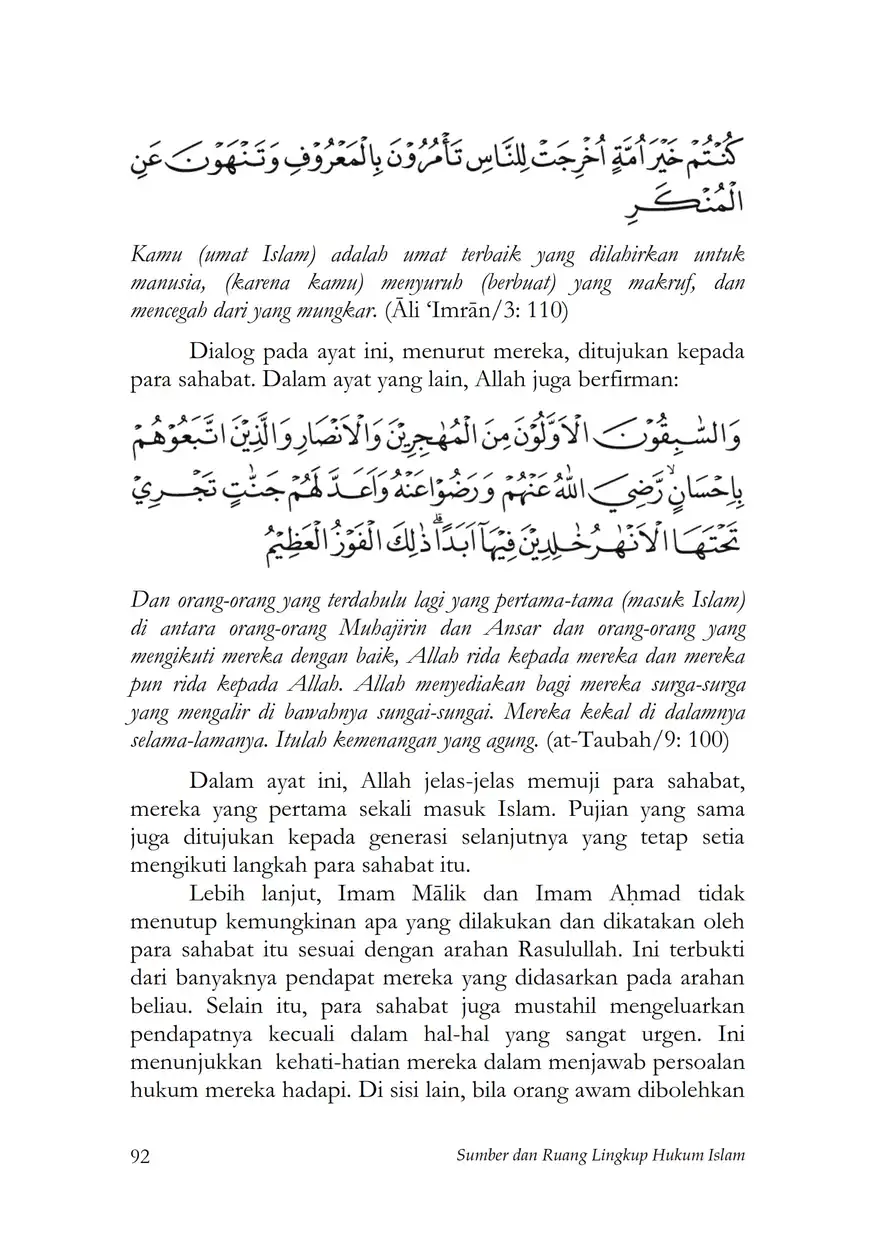 كُنْتُمْ خَيْرَ اُمَّةٍ اُخْرِجَتْ لِلنَّاسِ تَأْمُرُوْنَ بِالْمَعْرُوْفِ وَتَنْهَوْنَ عَنِ
الْمُنْكَرِ
Kamu (umat Islam) adalah umat terbaik yang dilahirkan untuk
manusia, (karena kamu) menyuruh (berbuat) yang makruf, dan
mencegah dari yang mungkar. (Āli ‘Imrān/3: 110)
Dialog pada ayat ini, menurut mereka, ditujukan kepada
para sahabat. Dalam ayat yang lain, Allah juga berfirman:
وَالسّٰبِقُوْنَ الْاَوَّلُوْنَ مِنَ الْمُهٰجِرِيْنَ وَالْاَنْصَارِ وَالَّذِيْنَ اتَّبَعُوْهُمْ
بِاِحْسَانٍۙ رَّضِيَ اللّٰهُ عَنْهُمْ وَرَضُوْا عَنْهُ وَاَعَدَّ لَهُمْ جَنّٰتٍ تَجْرِيْ
تَحْتَهَا الْاَنْهٰرُ خٰلِدِيْنَ فِيْهَآ اَبَدًاۗ ذٰلِكَ الْفَوْزُ الْعَظِيْمُ
Dan orang-orang yang terdahulu lagi yang pertama-tama (masuk Islam)
di antara orang-orang Muhajirin dan Ansar dan orang-orang yang
mengikuti mereka dengan baik, Allah rida kepada mereka dan mereka
pun rida kepada Allah. Allah menyediakan bagi mereka surga-surga
yang mengalir di bawahnya sungai-sungai. Mereka kekal di dalamnya
selama-lamanya. Itulah kemenangan yang agung. (at-Taubah/9: 100)
Dalam ayat ini, Allah jelas-jelas memuji para sahabat,
mereka yang pertama sekali masuk Islam. Pujian yang sama
juga ditujukan kepada generasi selanjutnya yang tetap setia
mengikuti langkah para sahabat itu.
Lebih lanjut, Imam Mālik dan Imam Aḥmad tidak
menutup kemungkinan apa yang dilakukan dan dikatakan oleh
para sahabat itu sesuai dengan arahan Rasulullah. Ini terbukti
dari banyaknya pendapat mereka yang didasarkan pada arahan
beliau. Selain itu, para sahabat juga mustahil mengeluarkan
pendapatnya kecuali dalam hal-hal yang sangat urgen. Ini
menunjukkan kehati-hatian mereka dalam menjawab persoalan
hukum mereka hadapi. Di sisi lain, bila orang awam dibolehkan
92 Sumber dan Ruang Lingkup Hukum Islam